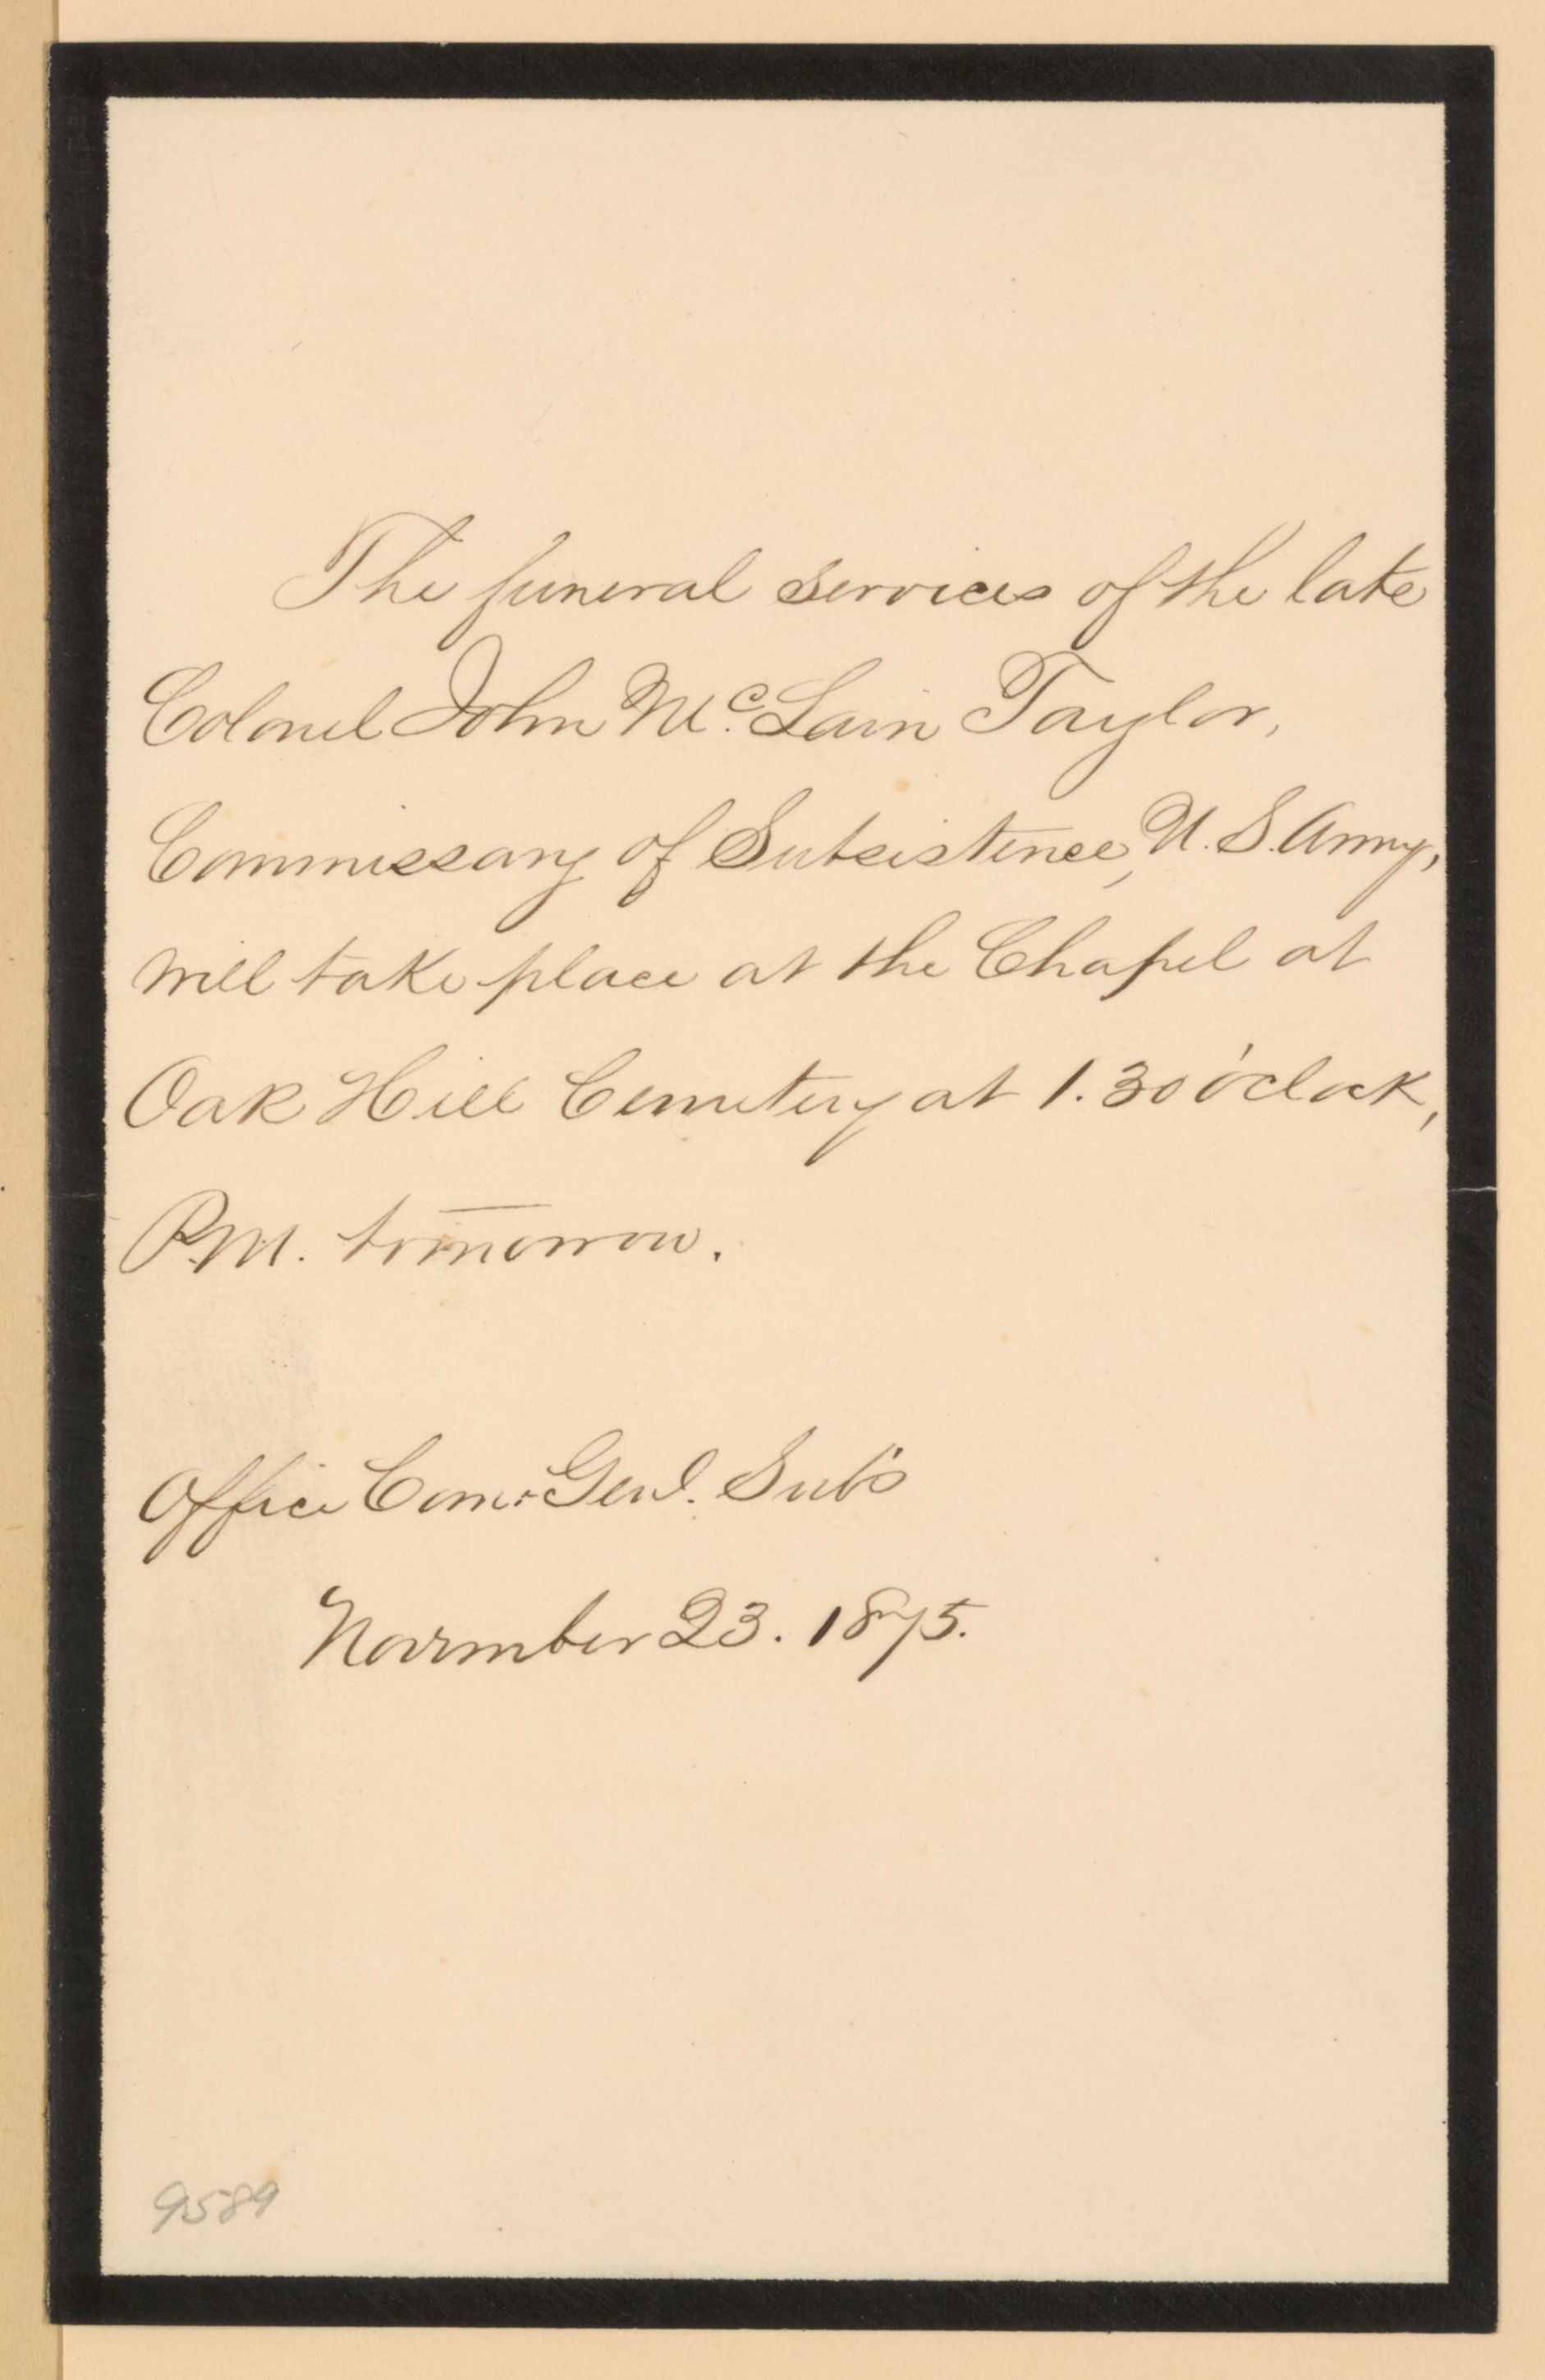 The funeral services of the late
Colonel John Mc. Lain Taylor,
Commissary of Subsistence, U. S. Army,
will take place at the Chapel at
Oak Hill Cemetery at 1.30 o'clock,
P.M. tomorrow.
Office Com: Genl. Sub's
November 23. 1875.
9589